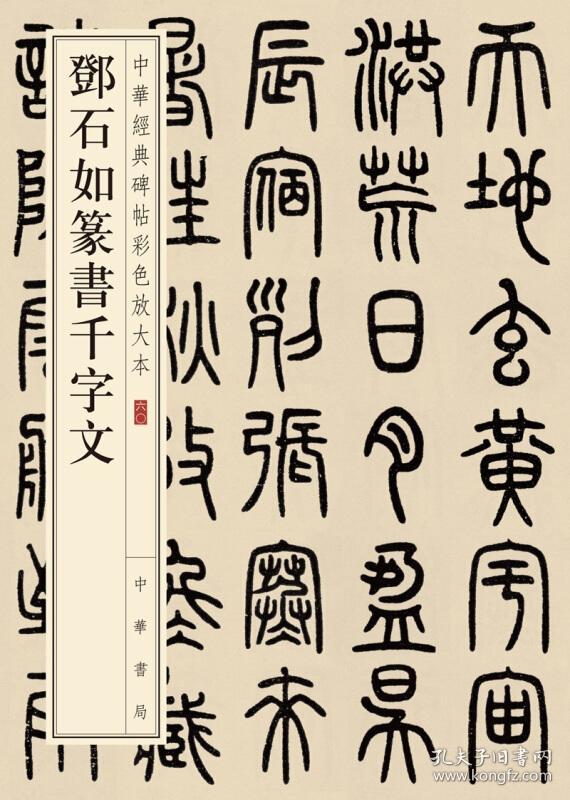 天地玄黃宇宙
洪荒日月盈昃
辰宿列張寒來
暑往秋收冬藏
中華經典碑帖彩色放大本 六〇
中華書局
鄧石如篆書千字文
孔夫子旧书网
www.kongfz.com